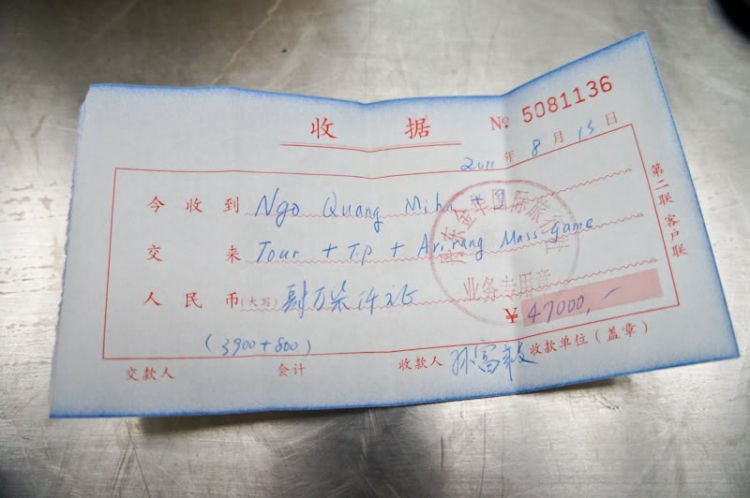 收 据 № 5081136
2011 年 8 月 15 日
今 收 到 Ngo Quang Mihn
交 来 Tour + T.P + Arirang Mass Game
人 民 币 (大写) 肆万柒仟元正
¥ 47000,—
(3900+800)
交款人 会计 收款人 孙富 收款单位(盖章)
第二联 客户联
国际旅
业务专用章